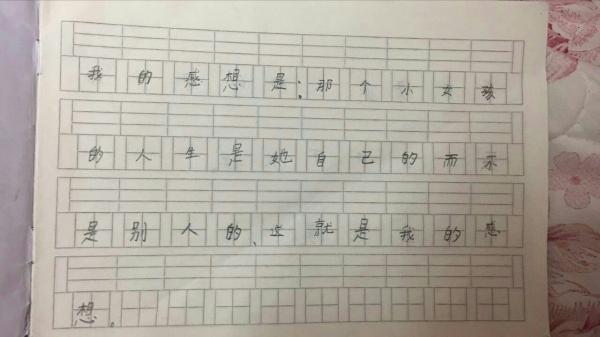 我的感想是：那个小女孩
的人生是她自己的而不
是别人的、这就是我的感
想。